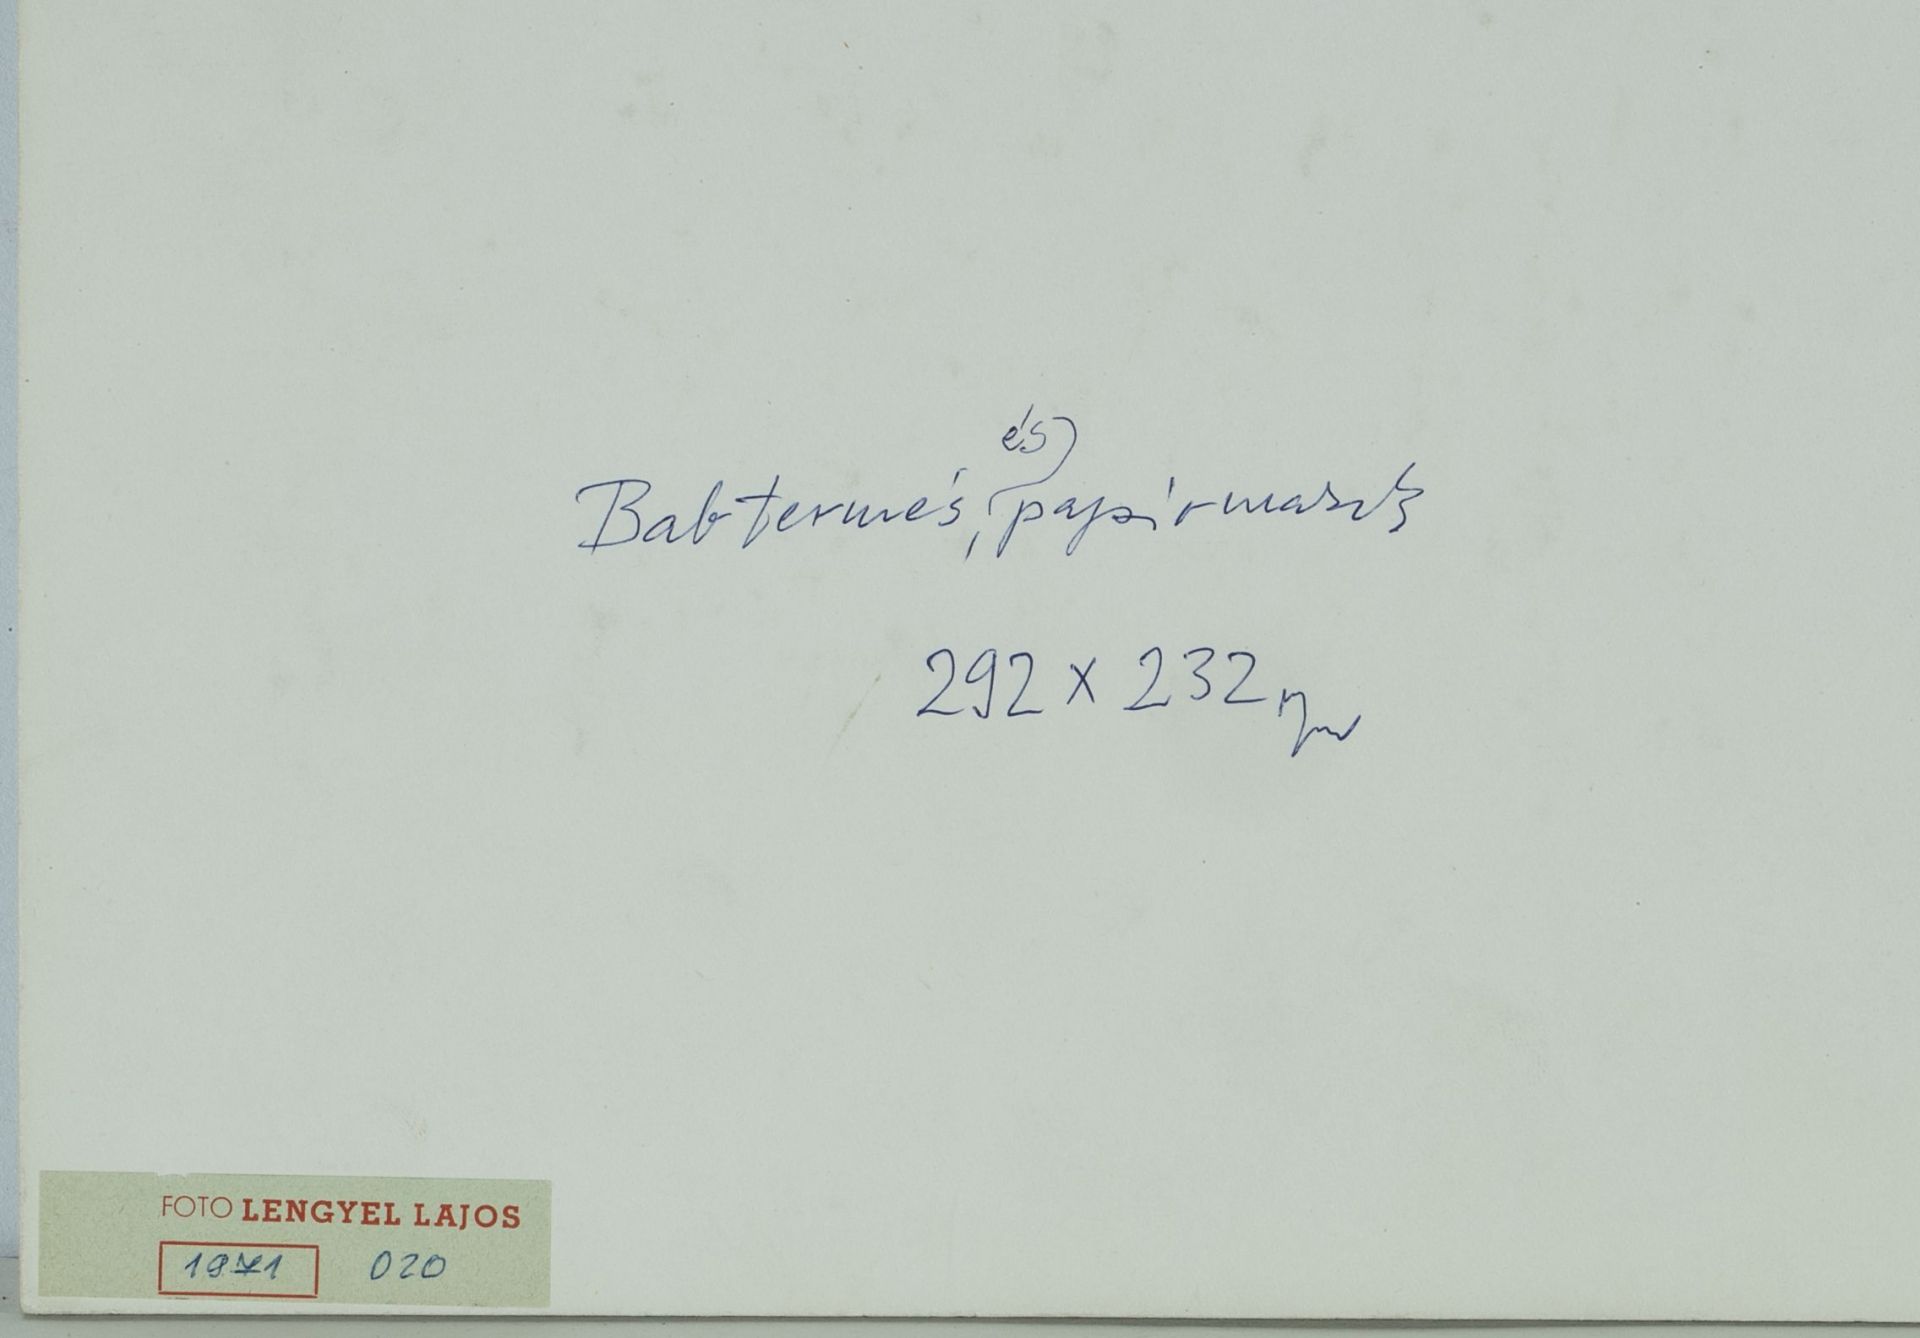 és
Babtermés, papírmasék
292 x 232 mm
FOTO LENGYEL LAJOS
1971 020